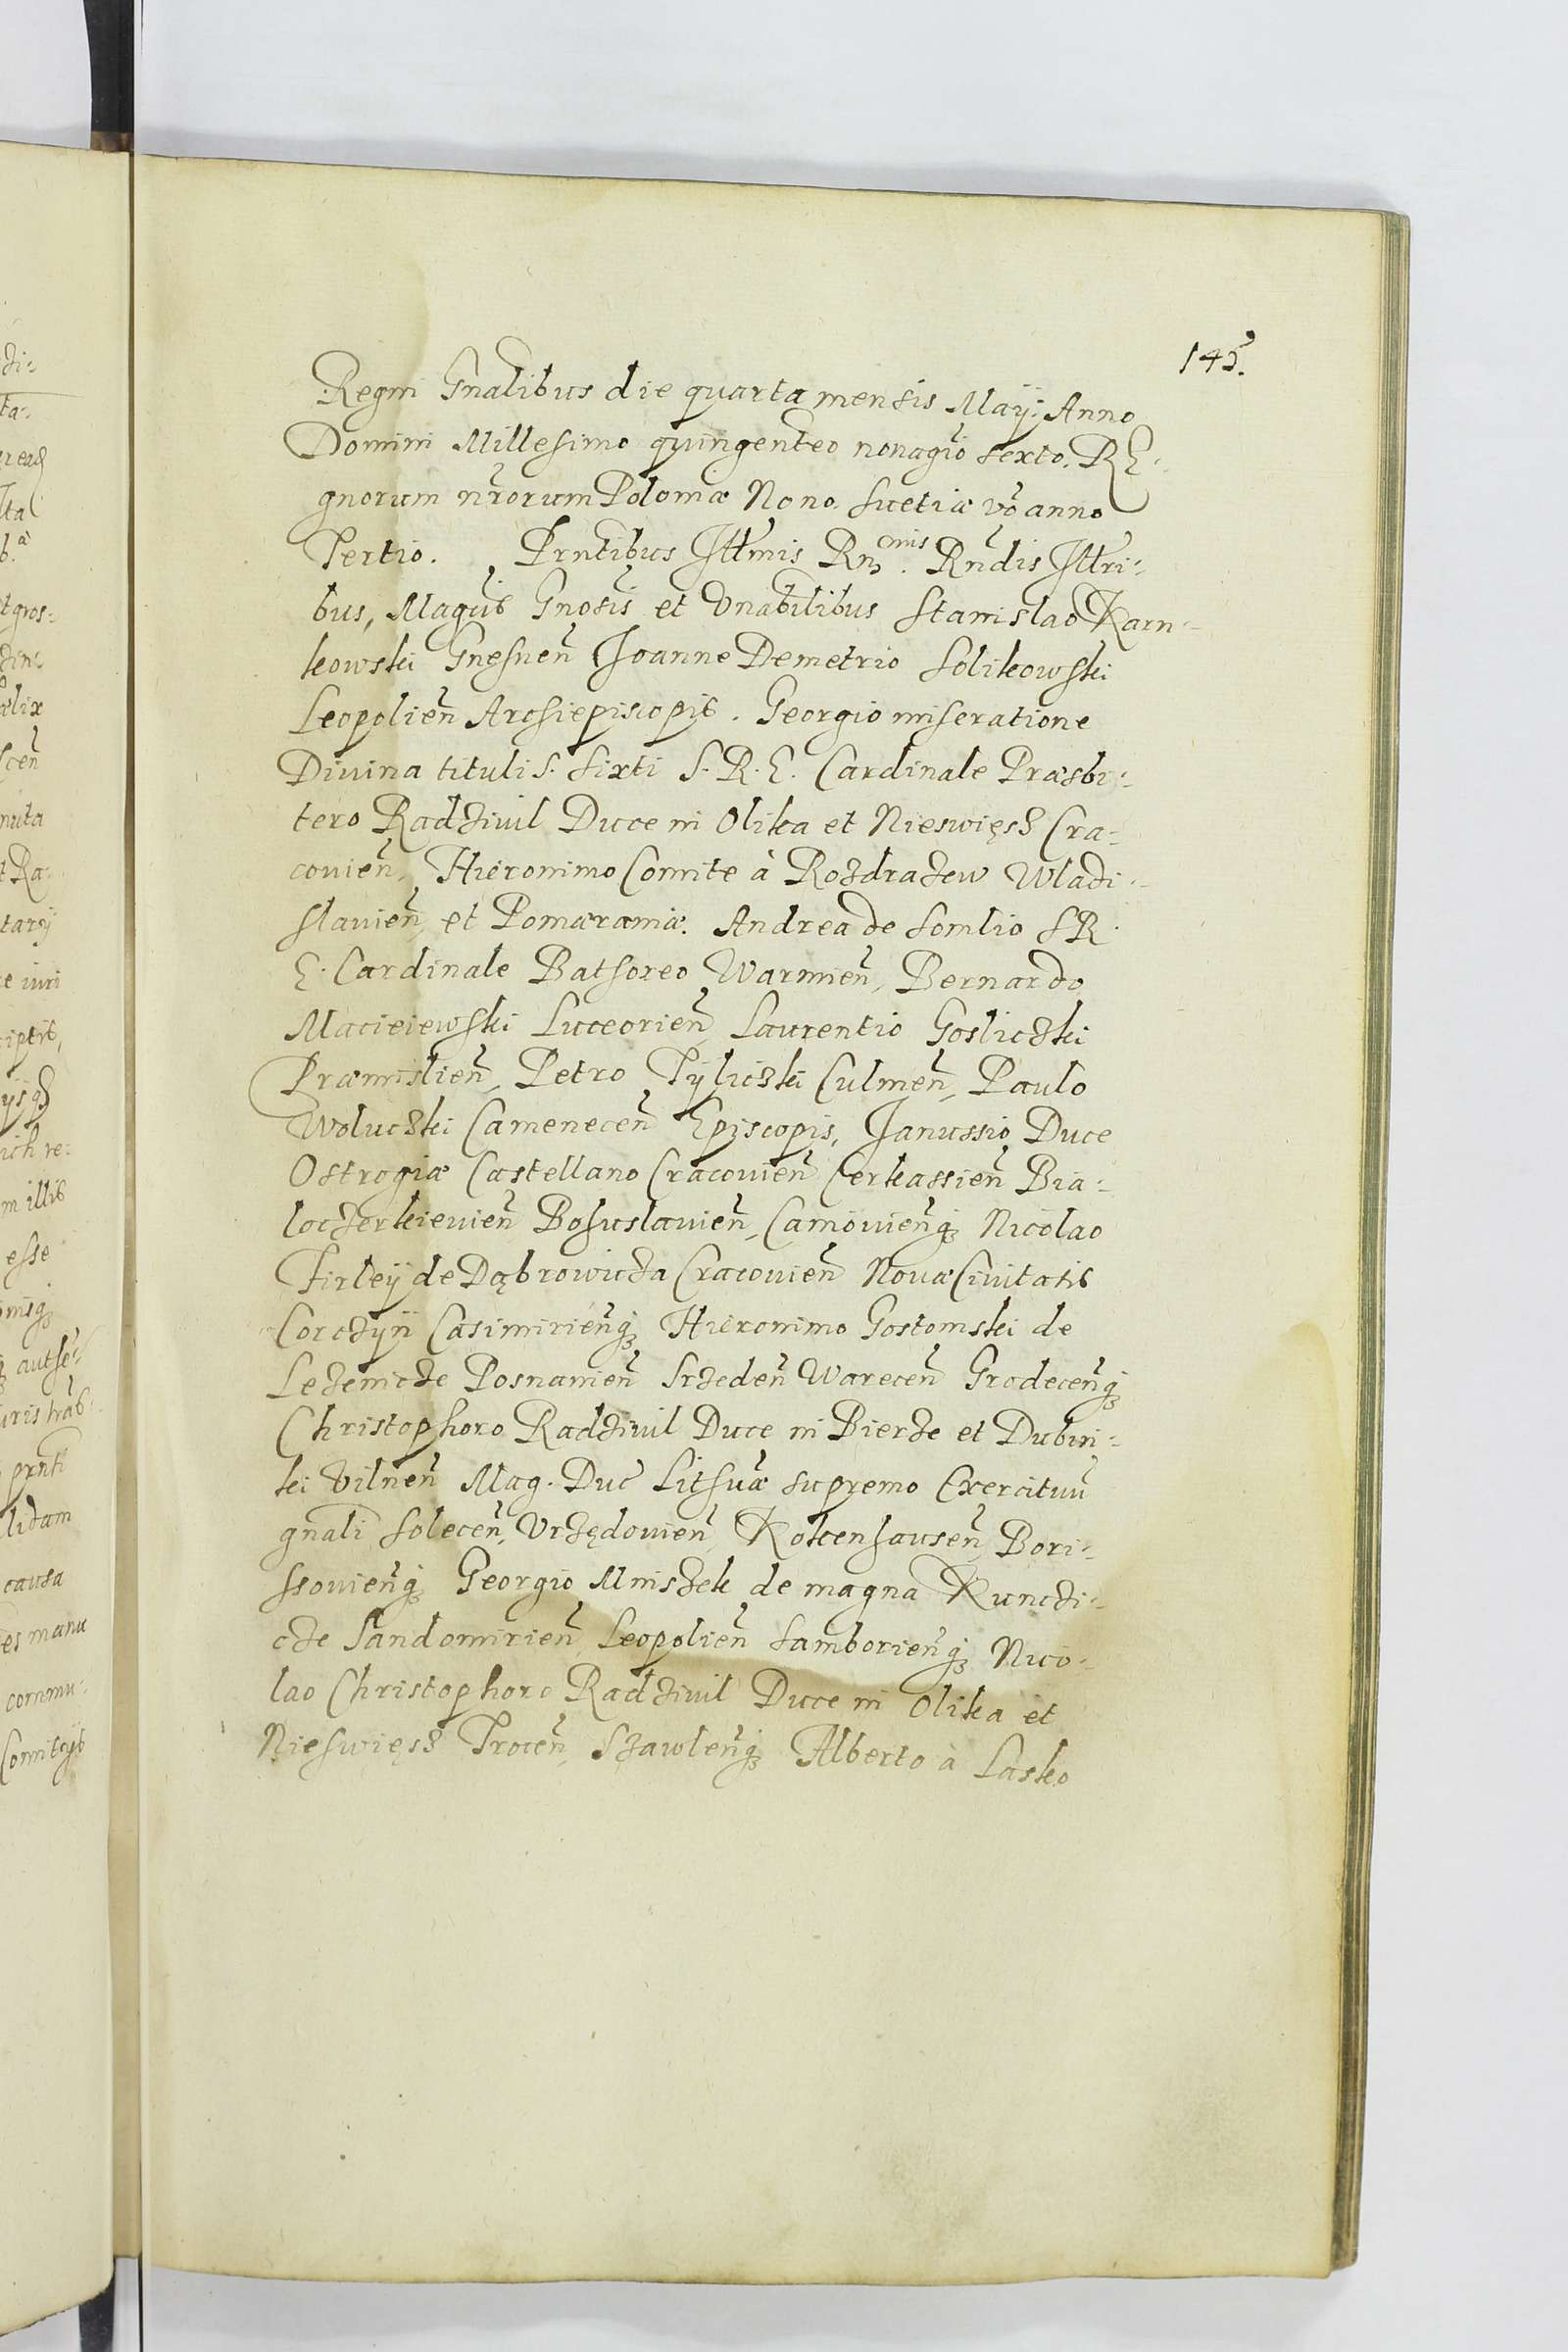 145.
Regni Gnalibus die quarta mensis Maÿ: Anno
Domini Millesimo quingenteo nonagio sexto. RE-
gnorum nrorum Poloniæ Nono. Suetiæ vo anno
Tertio. Prntibus Illmis Rmis. Rndis Illri-
bus, Magcis Gnosis et Vnabilibus Stanislao Karn-
kowski Gnesnen Joanne Demetrio Solikowski
Leopolien Archiepiscopis. Georgio miseratione
Diuina tituli S. Sixti S. R. E. Cardinale Præsbi-
tero Radziuil Duce in Olika et Nieswięss Cra-
couien, Hieronimo Comite à Rozdrazew Wladi-
slauien et Pomæraniæ. Andrea de Somlio S R
E. Cardinale Bathoreo Warmien, Bernardo
Macieiewski Luceorien Laurentio Gosliczki
Præmislien, Petro Tÿliczki Culmen, Paulo
Woluczki Camenecen Episcopis, Janussio Duce
Ostrogiæ Castellano Cracouien Cerkassien Bia-
loczerkieuien Bohuslauien, Camiouienq3 Nicolao
Firleÿ de Dąbrowicza Cracouien Nouæ Ciuitatis
Corczyn Casimirienq3 Hieronimo Gostomski de
Lezenicze Posnanien Srzeden Warecen Grodecenq3
Christophoro Radziuil Duce in Bierze et Dubin-
ki Vilnen Mag. Duc Lithuæ supremo Exercituu
gnali Solecen, Vrzędouien, Kokenhausen, Bori-
ssouienq3 Georgio Mniszek de magna Kunczi-
cze Sandomirien Leopolien Samborienq3 Nico-
lao Christophoro Radziuil Duce in Olika et
Nieswięss Trocen, Szawlenq3 Alberto à Lasko